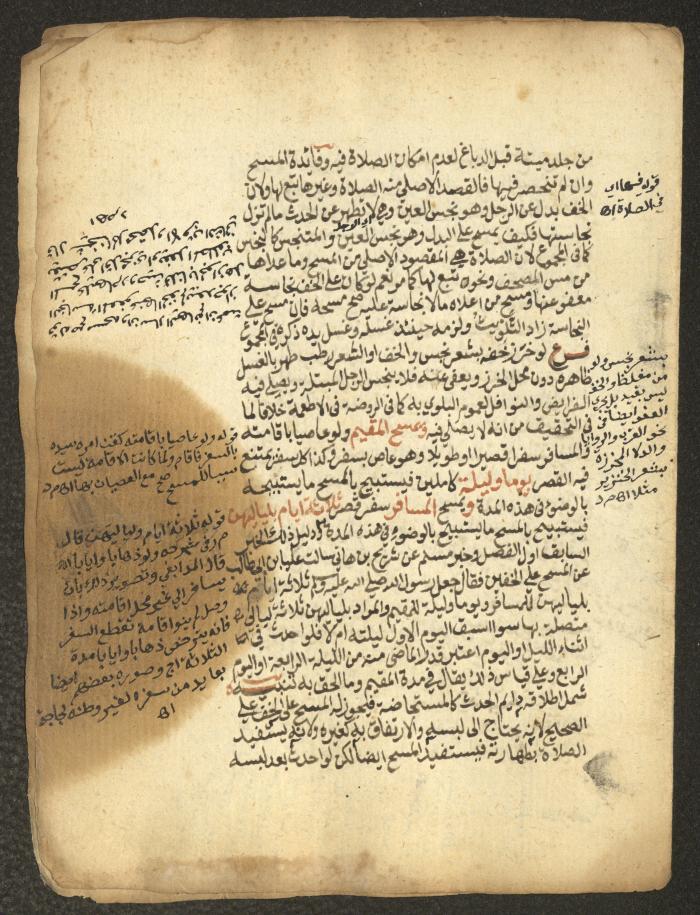 من جلد ميتة قبل الدباغ لعدم امكان الصلاة فيه وفائدة المسح
وان لم تنحصر فيها فالقصد الاصلي منه الصلاة وغيرها تبع لها ولان
الخف بدل عن الرجل وهو نجس العين وهي لا تطهر عن الحدث ما لم تزل
نجاستها فكيف يمسح على البدل وهو نجس العين والمتنجس كالنجس
كما في المجموع لان الصلاة هي المقصود الاصلي من المسح وما عداها
من مس المصحف ونحوه تبع لها كما مر نعم لو كان على الخف نجاسة
معفو عنها ومسح من اعلاه ما لا نجاسة عليه صح مسحه فان مسح على
النجاسة زاد التلويث ولزمه حينئذ غسله وغسل يده ذكره في المجموع
فرع لو خرز خفه بشعر نجس والخف او الشعر رطب طهر بالغسل
ظاهره دون محل الخرز ويعفى عنه فلا ينجس الرجل المبتلة ويصلي فيه
الفرايض والنوافل لعموم البلوى به كما في الروضة في الاطعمة خلافا لما
في التحقيق من انه لا يصلي فيه ويمسح المقيم ولو عاصيا باقامته
والمسافر سفرا قصيرا او طويلا وهو عاص بسفره وكذا كل سفر يمتنع
فيه القصر يوما وليلة كاملين فيستبيح بالمسح ما يستبيحه
بالوضوء في هذه المدة ويمسح المسافر سفر قصر ثلاثة ايام بلياليهن
فيستبيح بالمسح ما يستبيح بالوضوء في هذه المدة ودليل ذلك الخبر
السابق اول الفصل وخبر مسلم عن شريح بن هاني سالت علي بن ابي طالب
عن المسح على الخفين فقال جعل رسول الله صلى الله عليه وسلم ثلاثة ايام
بلياليهن للمسافر ويوما وليلة للمقيم والمراد بلياليهن ثلاث ليال
متصلة بها سوا اسبق اليوم الاول ليلته ام لا فلو احدث في
اثناء الليل او اليوم اعتبر قدر الماضي منه من الليلة الرابعة او اليوم
الرابع وعلى قياس ذلك يقال في مدة المقيم وما الحق به تنبيه
شمل اطلاقه دايم الحدث كالمستحاضة فيجوز له المسح على الخف على
الصحيح لانه يحتاج الى لبسه والارتفاق به كغيره ولانه يستفيد
الصلاة بطهارته فيستفيد المسح ايضا لكن لو احدث بعد لبسه
قوله فيها اي
في الصلاة اه
بشعر نجس ولو
من مغلظ والخف
ليس بقيد بل يجري
العفو ايضا في
نحو القرب والروايا
والدلا المخرزة
بشعر الخنزير
مثلا اه م د
قوله ولو عاصيا باقامته كعبد امره سيده
بالسفر فاقام ولما كانت الاقامة ليست
سببا للمسح صح مع العصيان بها اه م د
قوله ثلاثة ايام ولياليهن قال
م ر في شرحه ولو ذهابا وايابا اه
قال المدابغي وتصوير ذلك بان
يسافر الى غير محل اقامته واذا
وصل لم ينو اقامة تقطع السفر
فانه يترخص ذهابا وايابا مدة
الثلاثة اه وصوره بعضهم ايضا
بما يد من سفره لغير وطنه لحاجة
اه